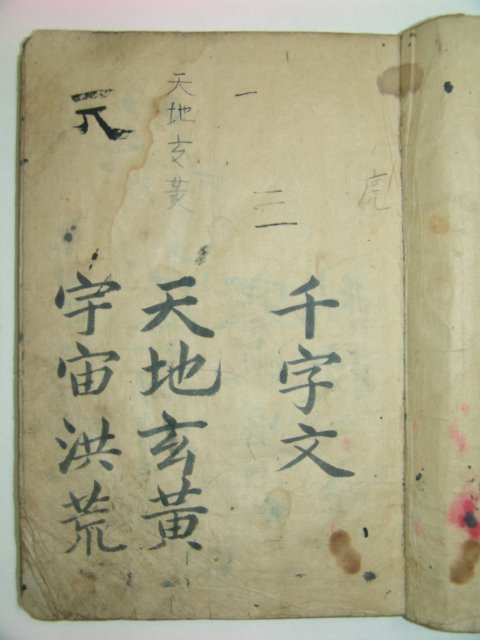 虎
千字文
一
二一
天地玄黃
天地玄黃
宇宙洪荒